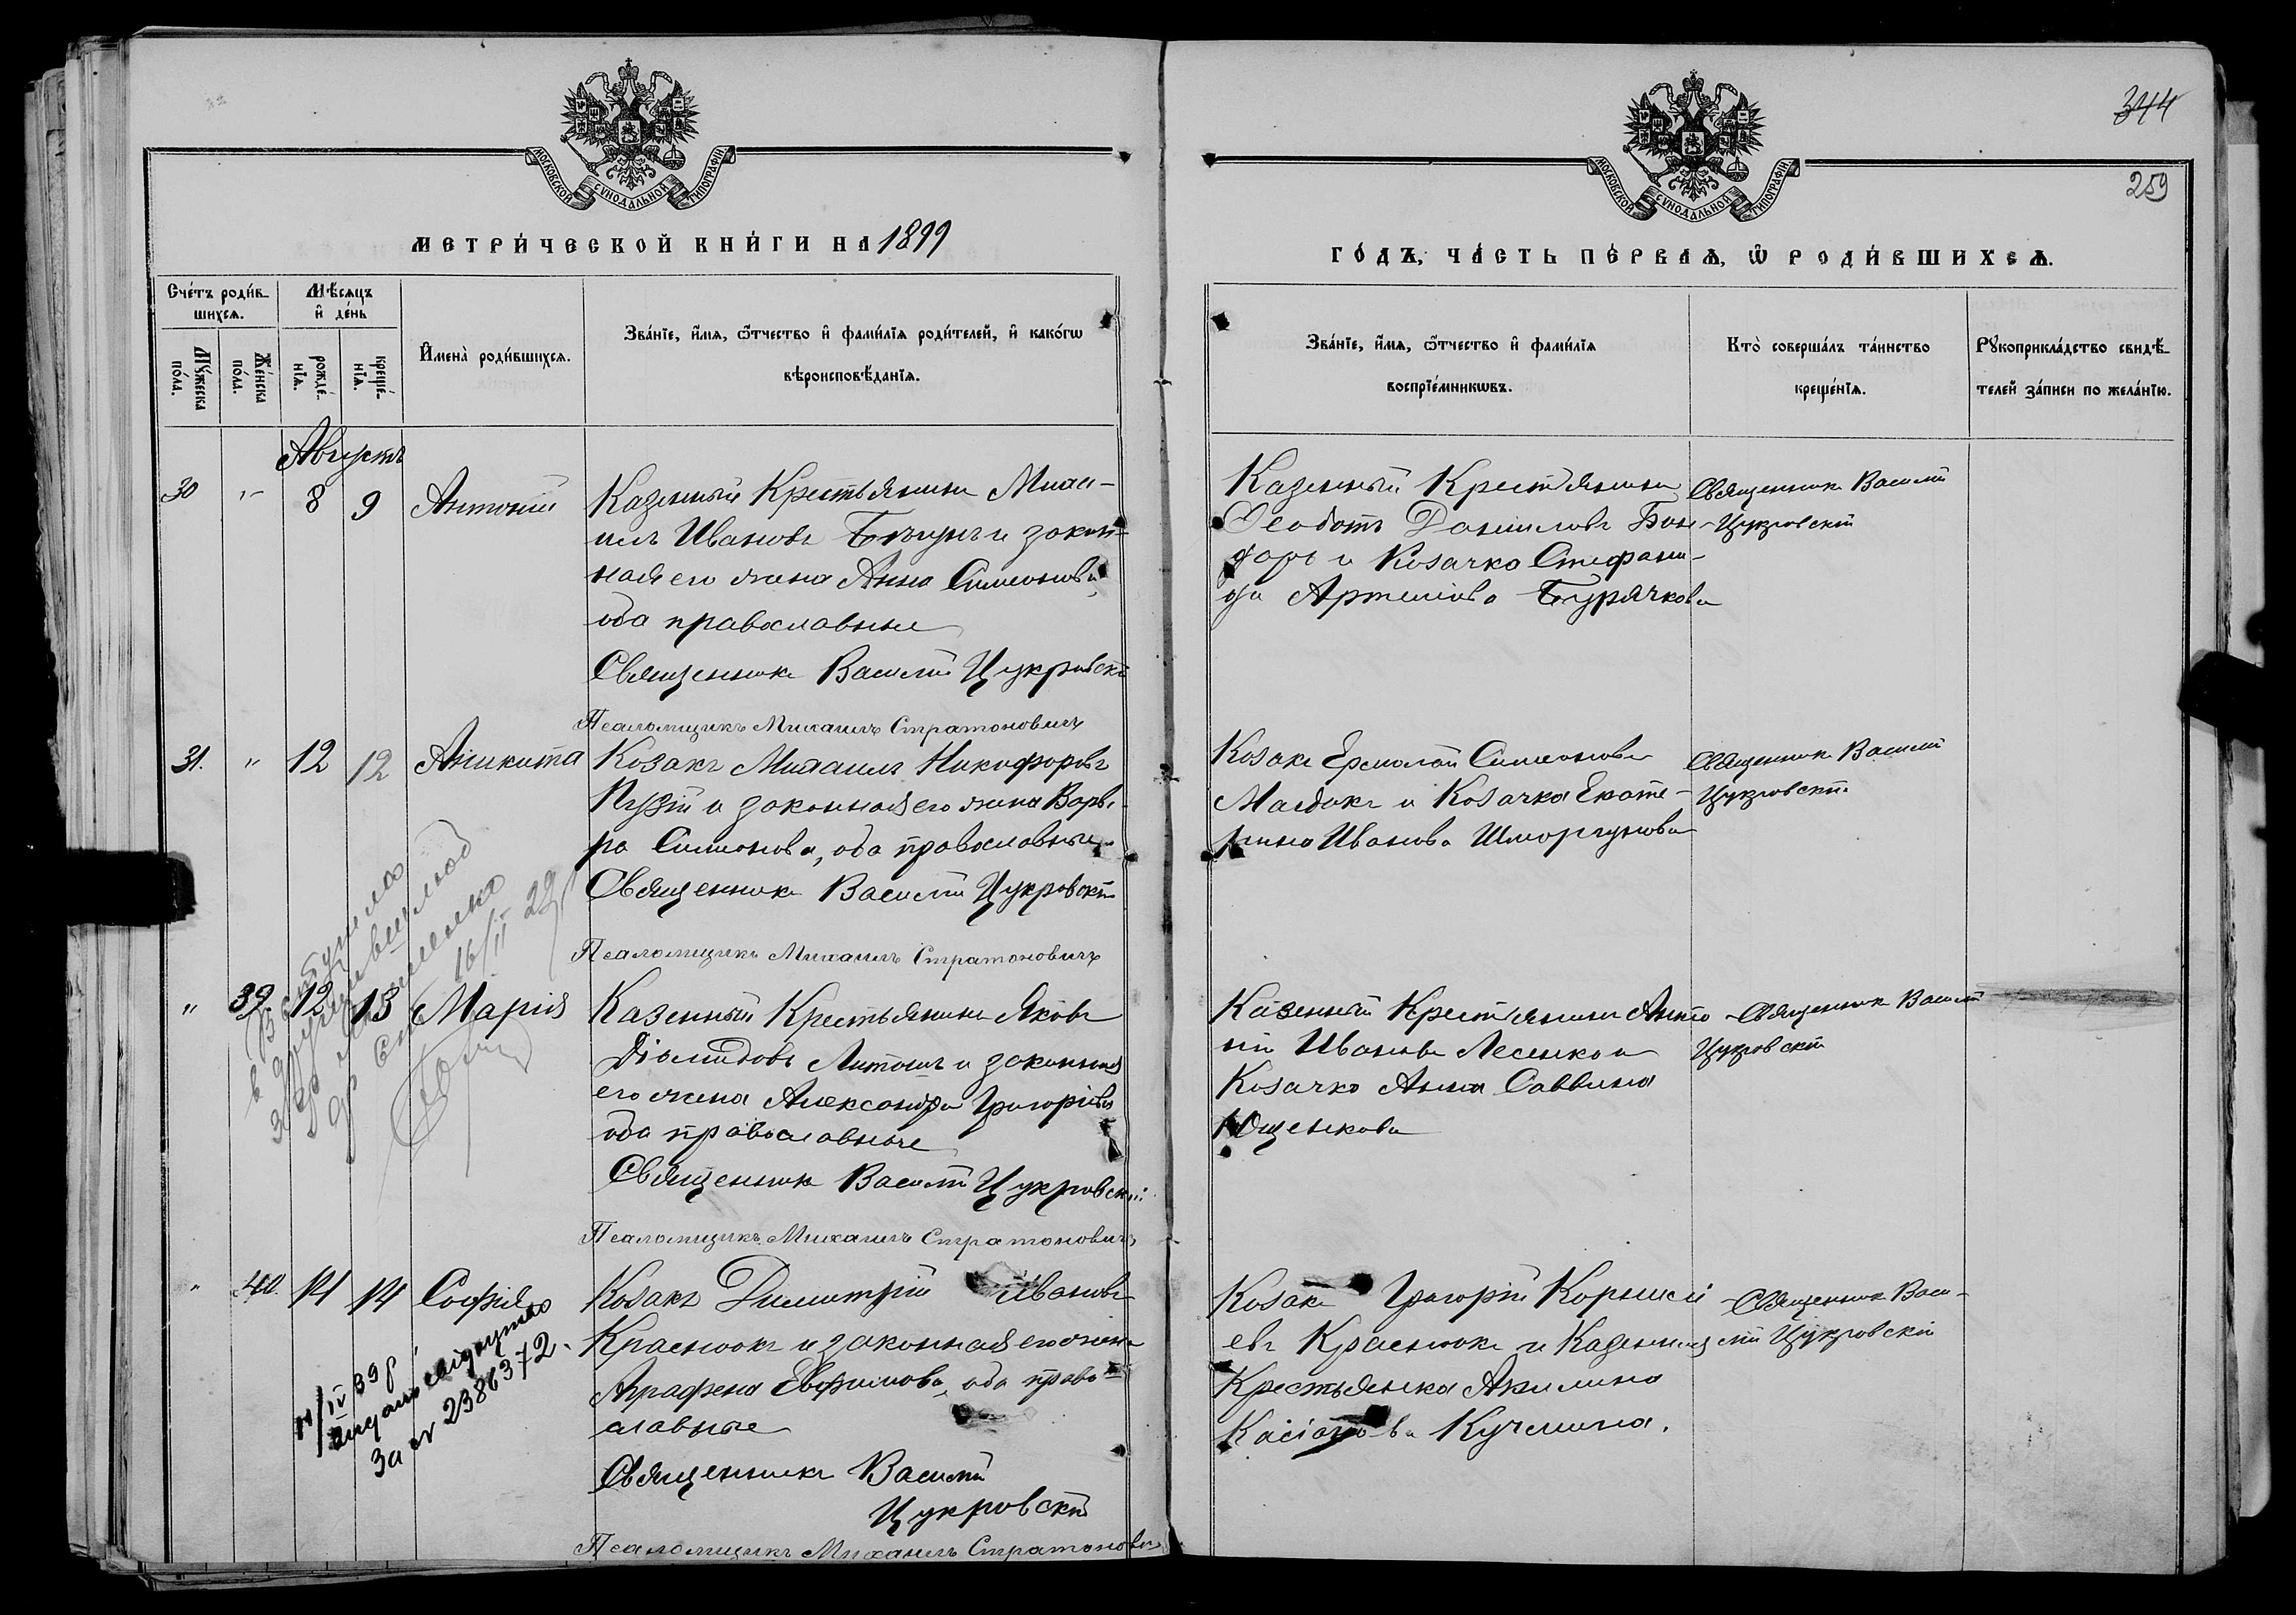 МОСКОВСКОЙ СУНОДАЛЬНОЙ ТИПОГРАФІИ
МЕТРИ́ЧЕСКОЙ КНИ́ГИ НА 1899
Сче́тъ роди́в-
шихсѧ.
Мꙋ́жеска
по́ла.
Же́нска
по́ла.
Мѣ́сѧцъ
и҆ де́нь
рожде́-
нїѧ.
креще́-
нїѧ.
И҆мена̀ роди́вшихсѧ.
Зва́нїе, и҆́мѧ, ѻ҆́тчество и҆ фами́лїѧ роди́телей, и҆ како́гѡ
вѣроисповѣ́данїѧ.
Августъ
30 " 8 9 Антоній
Казенный Крестьянинъ Миха-
илъ Ивановъ и закон-
ная его жена Анна Симеонова,
оба православные
Священникъ Василій Цукровскій
Псаломщикъ Михаилъ Стратоновичъ
31. " 12 12 Аникита
Козакъ Михаилъ Никифоровъ
Пузій и законная его жена Варва-
ра Симеонова, оба православные
Священникъ Василій Цукровскій
Псаломщикъ Михаилъ Стратоновичъ
" 39. 12 13 Марія
Казенный Крестьянинъ Яковъ
Діомидовъ и законная
его жена Александра Григоріева
оба православные
Священникъ Василій Цукровскій
Псаломщикъ Михаилъ Стратоновичъ
Вступила
в другий
16/II 29
" 40. 14 14 Софія
Козакъ Димитрій Ивановъ
Краснюкъ и законная его жена
Агафена Евфимова, оба право-
славные
Священникъ Василій
Цукровскій
Псаломщикъ Михаилъ Стратонович
/IV 39 р
за № 2386372.
344
259
МОСКОВСКОЙ СУНОДАЛЬНОЙ ТИПОГРАФІИ
ГО́ДЪ, ЧА́СТЬ ПЕ́РВАѦ, Ѡ҆ РОДИ́ВШИХСѦ.
Зва́нїе, и҆́мѧ, ѻ҆́тчество и҆ фами́лїѧ
воспрїе́мникѡвъ.
Кто̀ соверша́лъ та́инство
креще́нїѧ.
Рꙋкоприкла́дство свидѣ́-
телей за́писи по жела́нїю.
Казенный Крестьянинъ
Ѳеодотъ Даниловъ Бон-
даръ и Козачка Стефани-
да Артемиева Бурячкова
Священникъ Василій
Цукровскій
Козакъ Ермолай Симеоновъ
Майдакъ и Козачка Екате-
рина Иванова Шморгунова
Священникъ Василій
Цукровскій
Казенный Крестьянинъ Анто-
ній Ивановъ Лесенко и
Козачка Анна Саввина
Ющенкова
Священникъ Василій
Цукровскій
Козакъ Григорій Корнилі-
евъ Краснюкъ и Казенная
Крестьянка Акилина
Касіанова Кучмина.
Священникъ Васи-
лій Цукровскій